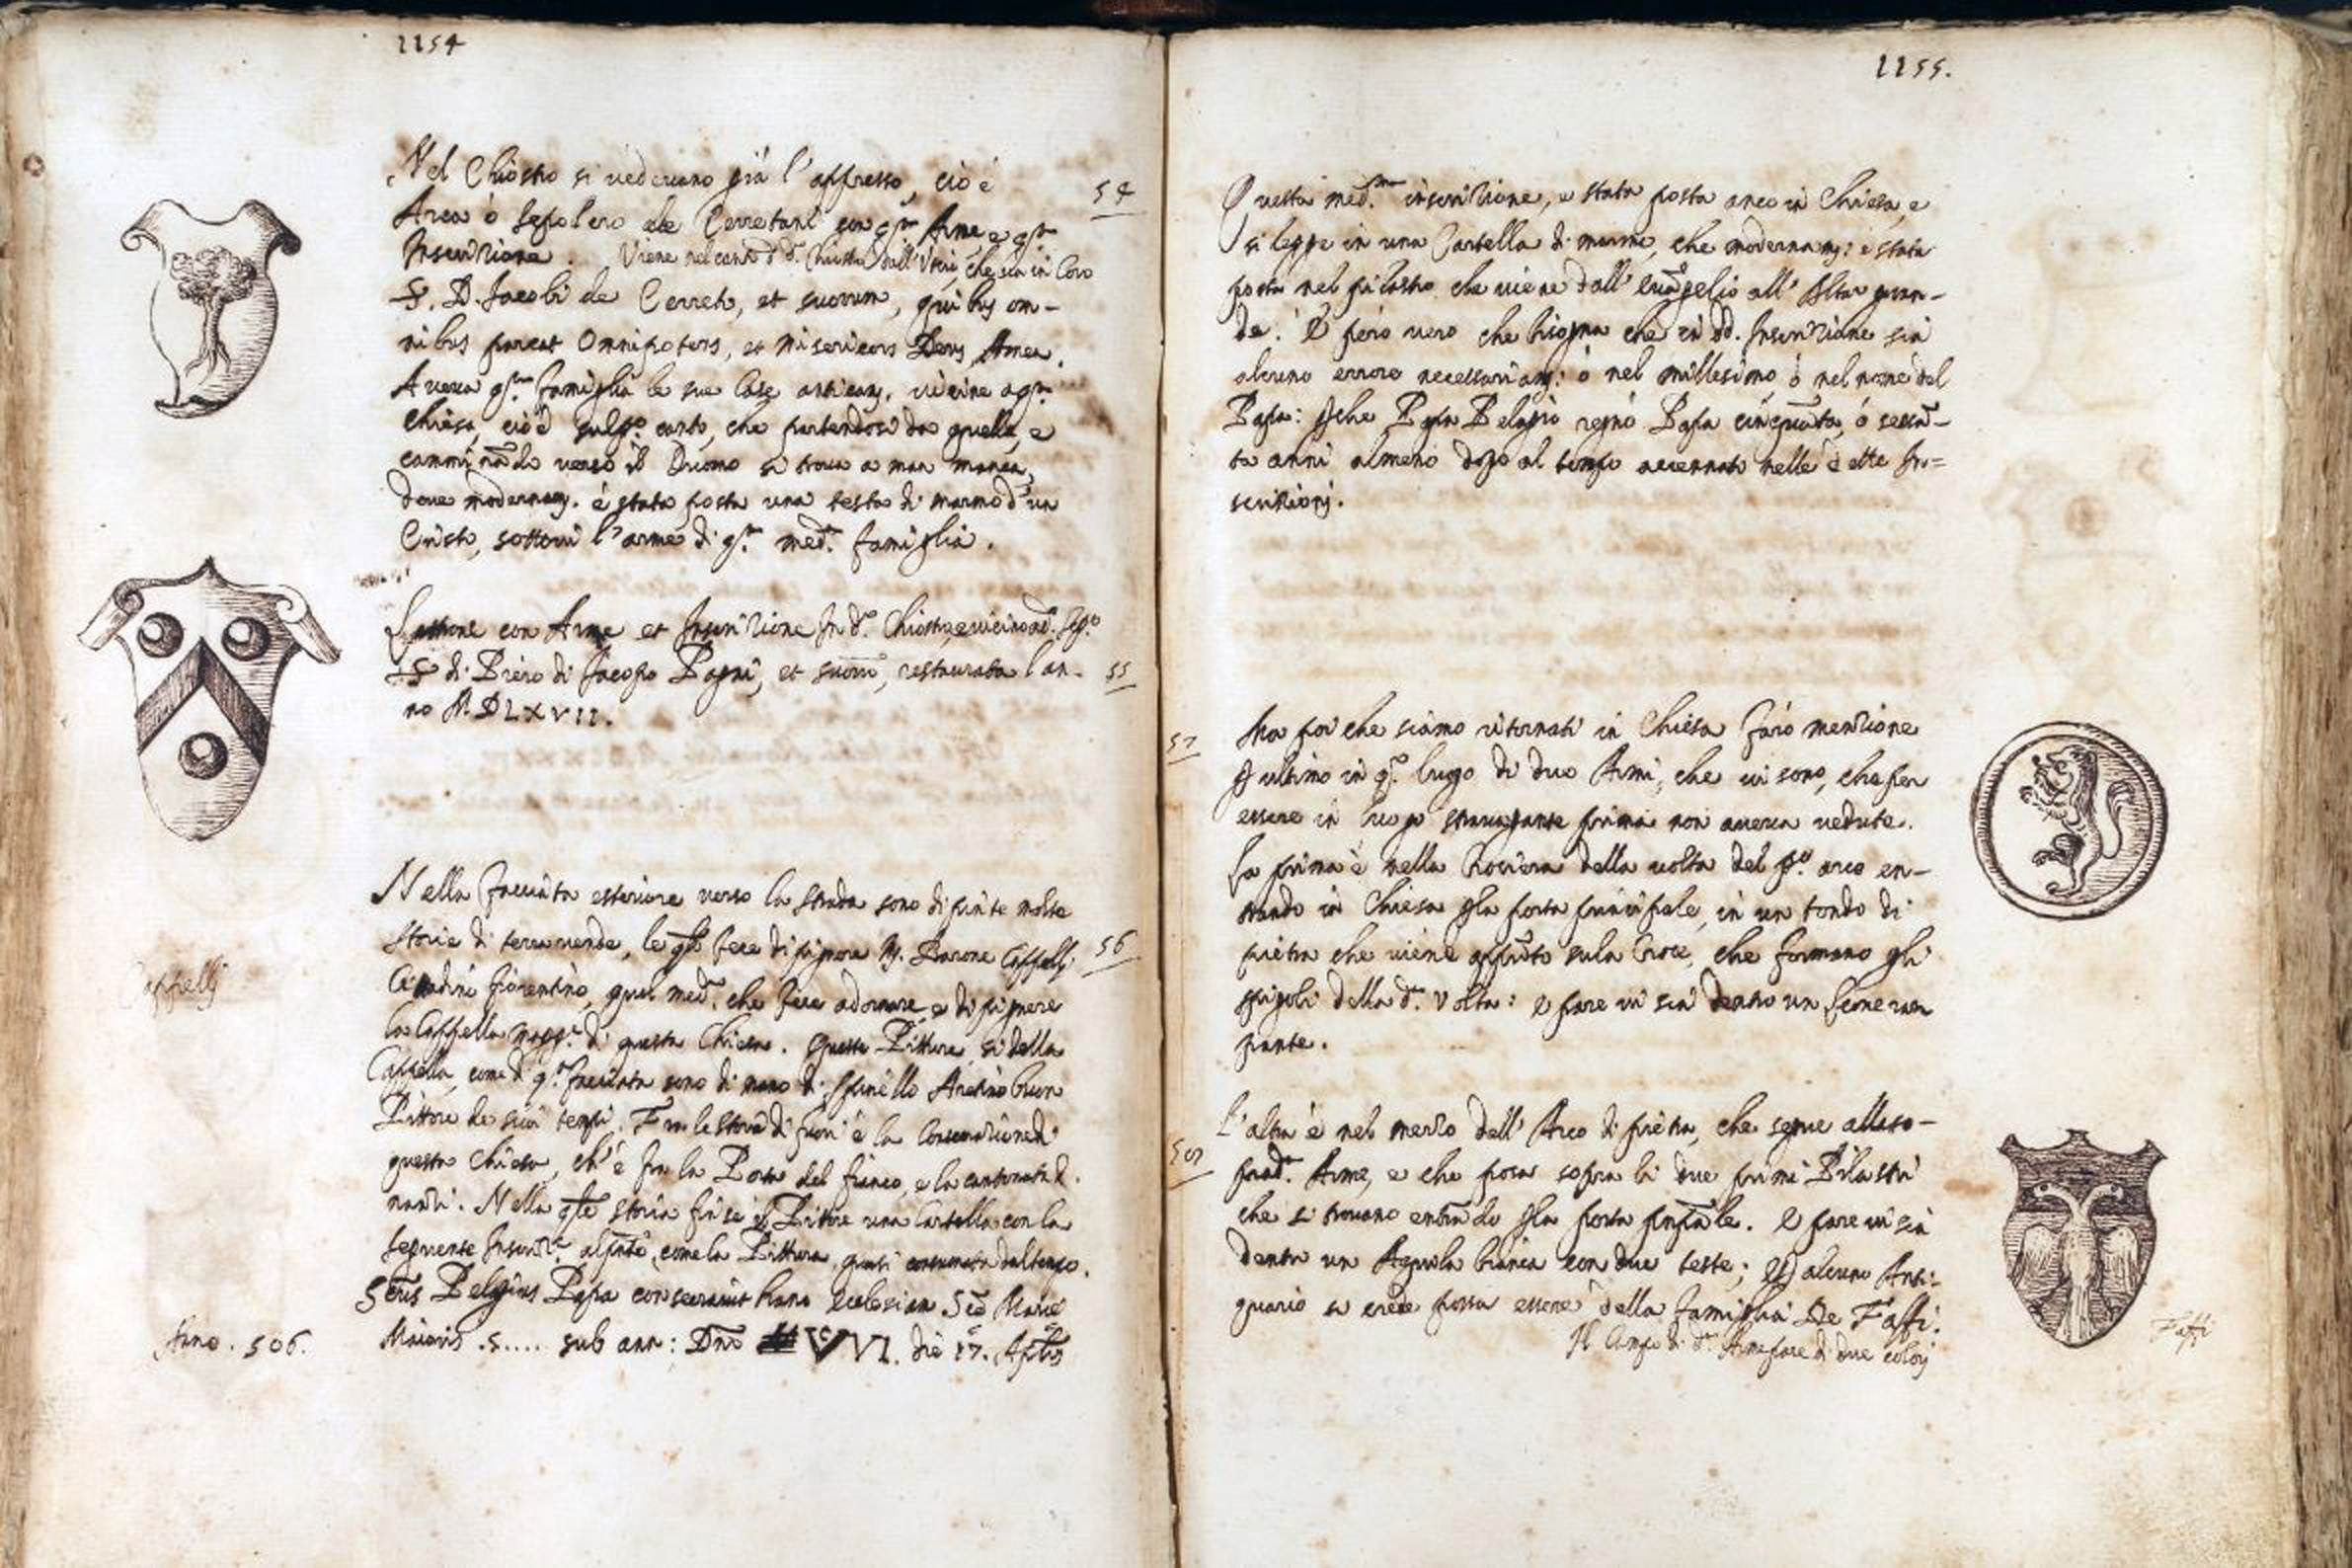 1154
Nel Chiostro si vedevano già l'appresso, cioè
54
Arca ò sepolcro de Cerretani con qsta Arme e qsta
Inscrizione. Viene nel canto d. dº. Chiostro dall'Uscio, che va in Coro
S. D. Jacobi de Cerreto, et suorum, quibus om-
nibus parcat Omnipotens, et misericors Deus, Amen.
Aveva qsta famiglia le sue Case anticam. vicine a qsta
Chiesa, cioè sul canto, che partendosi da quella, e
camminādo verso il Duomo si trova a man manca,
dove modernam. è stata posta una testa di marmo d'un
Cristo, sottovi l'arme di qsta med. famiglia.
Lastrone con Arme et Inscrizione In dº. Chiostro, e vicino a d. Sepº.
S di Piero di Jacopo Pagni, et suorū, restaurata l'an-
55
no M.DLXVII.
Nella facciata esteriore verso la strada sono dipinte molte
storie di terra verde, le qli fece dipignere M. Barone Cappelli
56
Cappelli
Cittadino fiorentino, quel med. che fece adornare, e dipignere
la Cappella magg. di questa Chiesa. Queste Pitture, sì della
Cappella, come di qª. facciata sono di mano di Spinello Aretino buon
Pittore de suoi tempi. Fra le storie di fuori è la Consecrazione di
questa Chiesa, ch'è fra la Porta del fianco, e la cantonata d.
nanzi. Nella qle storia finse il Pittore una Cartella con la
seguente Inscriz. alpnte, come la Pittura, quasi consumata dal tempo.
Sctus Pelagius Papa consecravit hanc ecclesiam Stē Mariē
Anno. 506.
Maioris .S..... sub ann: Dni VVI. die 17. Aplis
1155.
Questa med.ma inscrizione, è stata posta anco in Chiesa, e
si legge in una Cartella di marmo, che modernam: è stata
posta nel pilastro che viene dall'evāgelio all'Altar gran-
de. È però vero che bisogna che in dd. Inscrizione sia
alcuno errore necessariam: ò nel millesimo ò nel nome del
Papa: pche Papa Pelagio regnò Papa cinquāta, ò sessā-
ta anni almeno dopo al tempo accennato nelle dette In=
scrizioni.
57
Ma poi che siamo ritornati in Chiesa farò menzione
p ultimo in qº. luogo di due Armi, che vi sono, che per
essere in luogo stravagante prima non aveva vedute.
La prima è nella Crociera della volta del pº. arco en-
trando in Chiesa pla porta principale, in un tondo di
pietra che viene appūto sula Croce, che formano gli
spigoli della dª. volta: e pare vi sia dentro un Leone ram
pante.
58
L'altra è nel mezzo dell'Arco di pietra, che segue allaso-
prad. Arme, e che posa sopra li due primi Pilastri
che si trovano entrādo pla porta pnpale. e pare vi sia
dentro un Aquila bianca con due teste; e da alcuno Anti-
quario si crede possa essere della famiglia De Faffi.
Faffi
Il Campo di dª. Arme pare di due colori